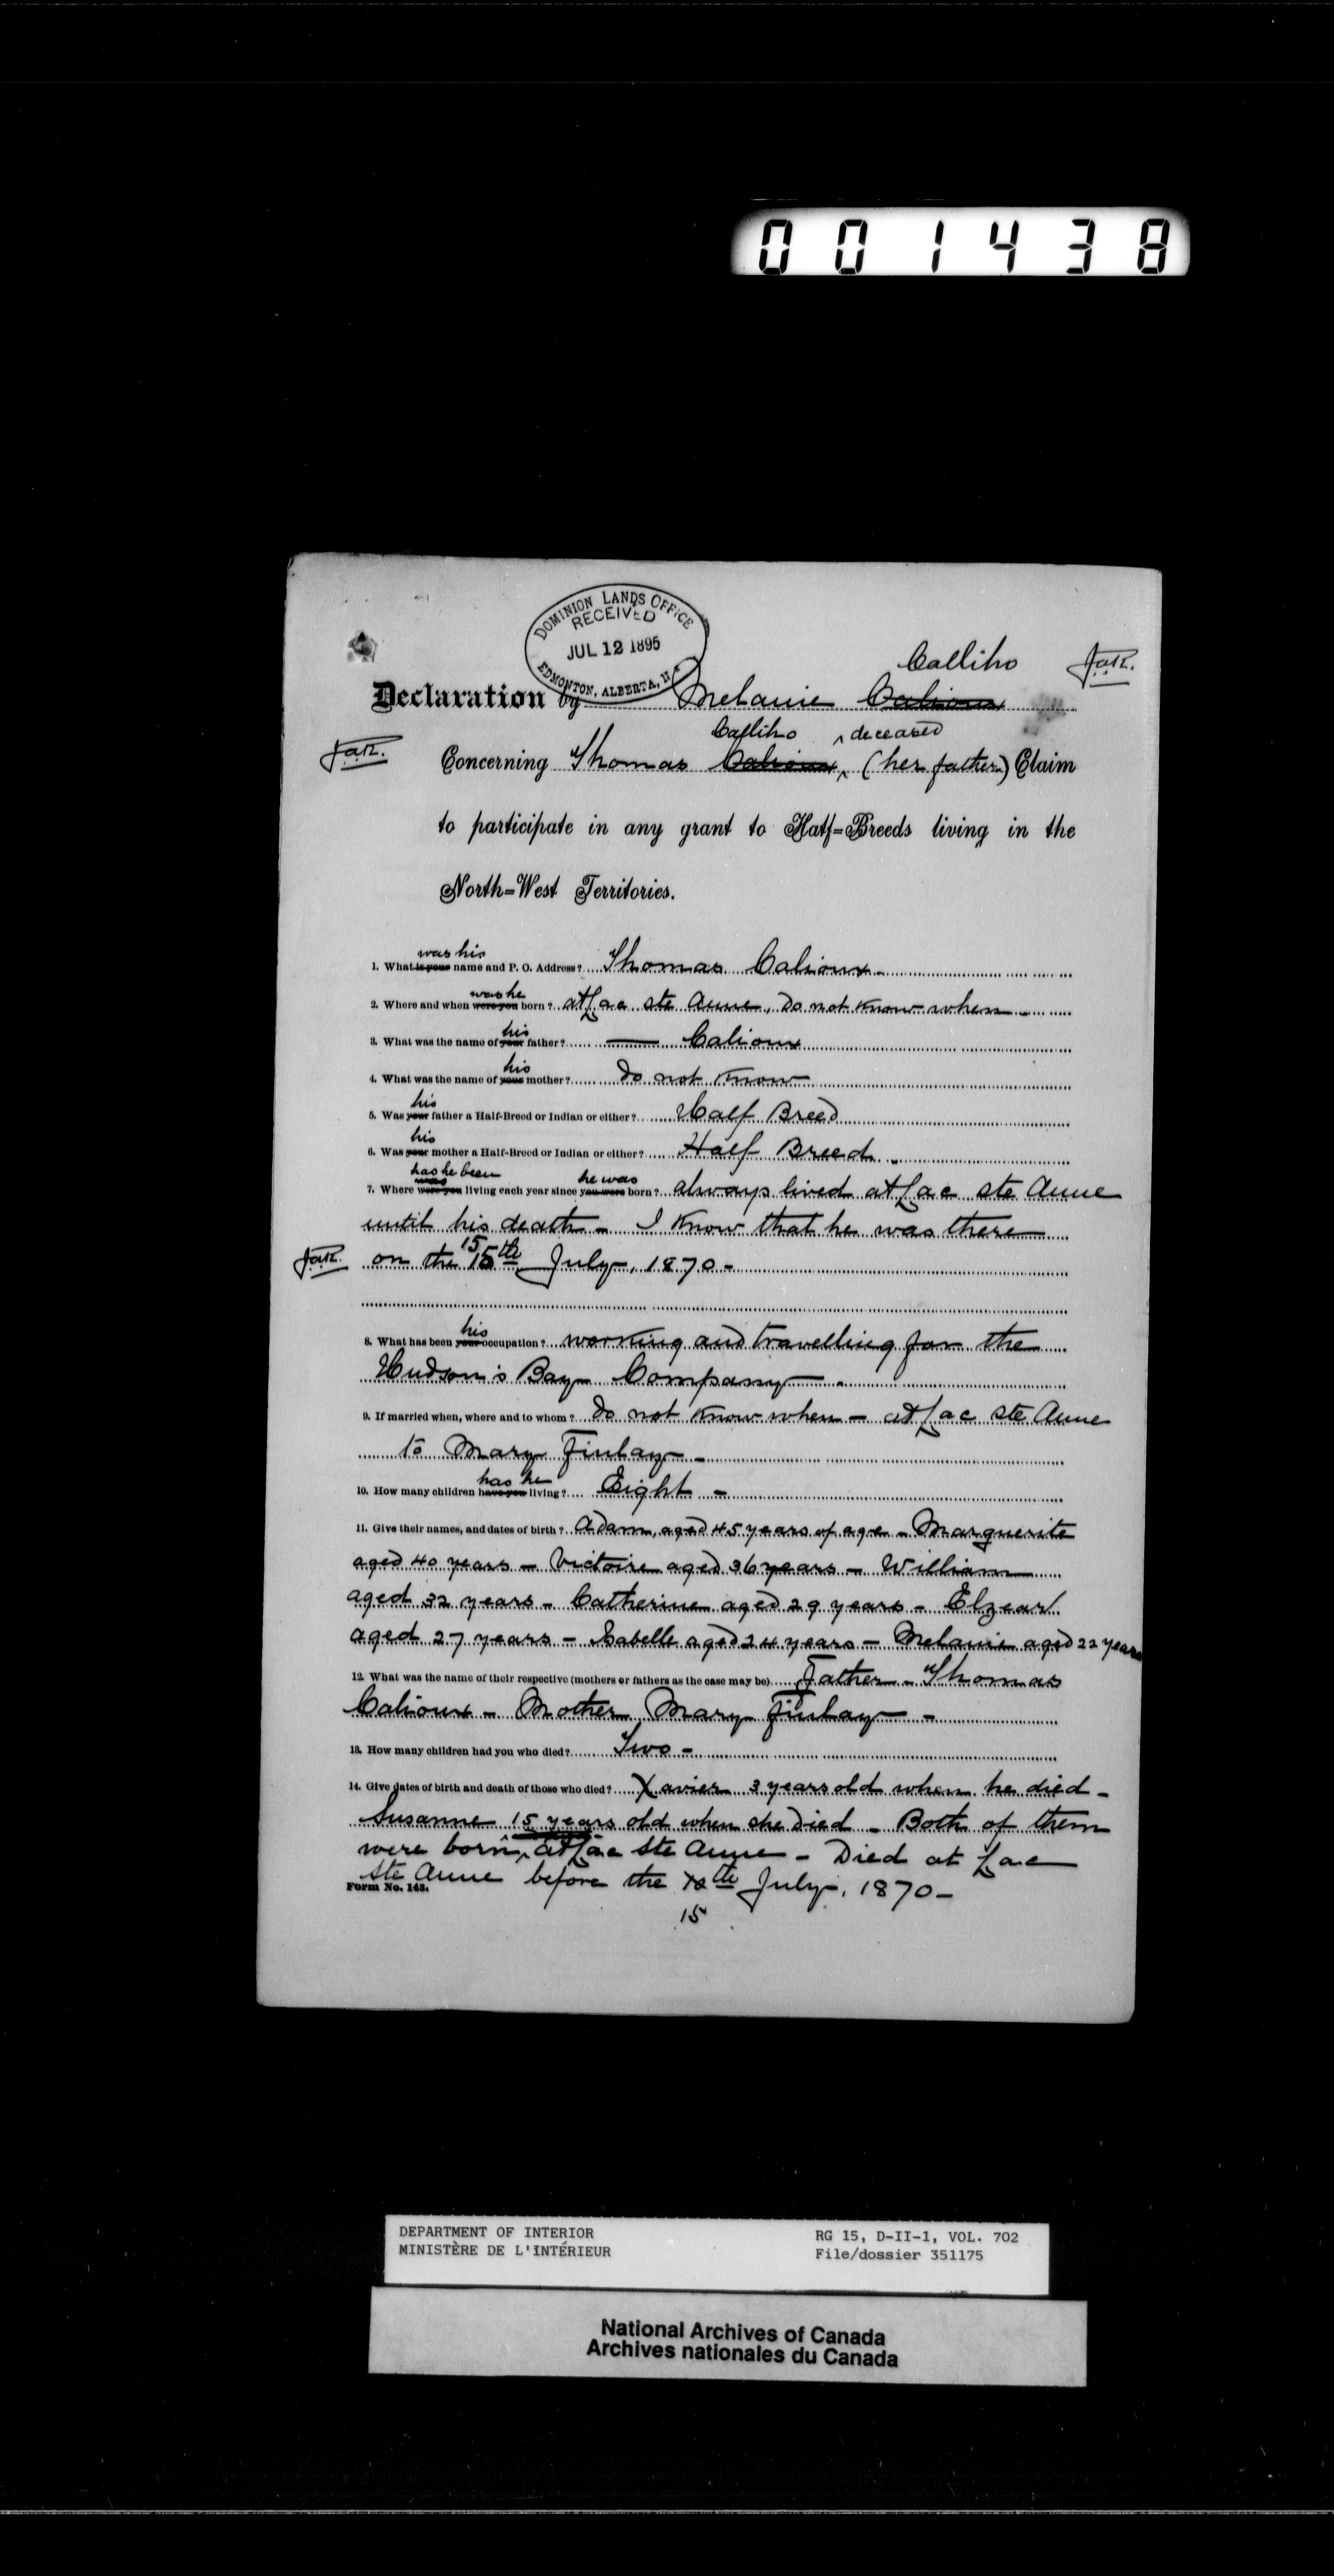 001438
DOMINION LANDS OFFICE
RECEIVED
JUL 12 1895
EDMONTON, ALBERTA, N.
Calliho
Declaration by Melanie Calioux
Calliho deceased
Concerning Thomas Calioux, (her father) Claim
to participate in any grant to Half=Breeds living in the
North=West Territories.
was his
1. What is your name and P. O. Address? Thomas Calioux -
was he
2. Where and when were you born? at Lac ste Anne, do not know when -
his
3. What was the name of your father? — Calioux
his
4. What was the name of your mother? do not know
his
5. Was your father a Half-Breed or Indian or either? Half Breed
his
6. Was your mother a Half-Breed or Indian or either? Half Breed -
has he been he was
7. Where were you living each year since you were born? always lived at Lac ste Anne
until his death - I know that he was there
15
on the 15th July, 1870 -
his
8. What has been your occupation? working and travelling for the
Hudson's Bay Company -
9. If married when, where and to whom? do not know when - at Lac ste Anne
to Mary Finlay -
has he
10. How many children have you living? Eight -
11. Give their names, and dates of birth? Adam, aged 45 years of age - Marguerite
aged 40 years - Victoire aged 36 years - William
aged 32 years - Catherine aged 29 years - Elzear
aged 27 years - Isabelle aged 24 years - Melanie aged 22 years
12. What was the name of their respective (mothers or fathers as the case may be) Father - Thomas
Calioux - Mother Mary Finlay -
13. How many children had you who died? Two -
14. Give dates of birth and death of those who died? Xavier 3 years old when he died -
Susanne 15 years old when she died - Both of them
were born at Lac ste Anne - Died at Lac
ste Anne before the th July, 1870 -
15
Form No. 143.
DEPARTMENT OF INTERIOR RG 15, D-II-1, VOL. 702
MINISTÈRE DE L'INTÉRIEUR File/dossier 351175
National Archives of Canada
Archives nationales du Canada